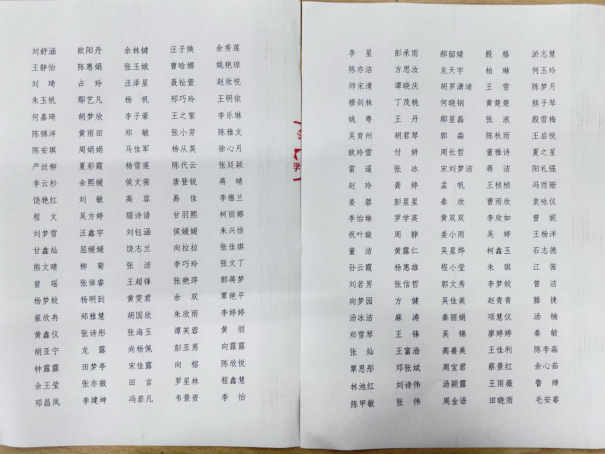 刘舒涵 欧阳丹 余林键 汪子焕 余秀莲
王静怡 陈惠娟 张玉娥 曹哈娜 姚艳琼
刘琦 占玲 汪泽星 聂祉萱 赵欣悦
朱玉帆 鄢艺凡 杨帆 邢巧玲 王明依
何嘉琦 胡梦欣 李子豪 王之絮 李乐琳
陈锦洋 黄雨田 邓敏 张小芳 陈雅文
陈安琪 周娟娟 马佳军 杨从昊 徐心月
严丝柳 夏彩霞 杨雪莲 陈代云 张廷颖
李云杉 余熙媛 侯文茜 唐登锐 蒋晴
饶艳红 刘敏 高容 易佳 李雅兰
程文 吴方婷 琚诗语 甘羽熙 柯丽娜
刘梦雪 汪鑫宇 刘钰涵 侯媛媛 朱兴恬
甘鑫灿 屈媛媛 饶志兰 向拉拉 张佳琪
熊文晴 柳菊 张洁 李巧玲 张文丁
曾瑶 张倬睿 王超锋 张艳萍 郭蒋梦
杨梦姣 杨明到 黄雯君 余双 覃艳平
崔欣冉 郑雅慧 胡国欣 朱欣雨 李婷婷
黄鑫仪 张诗彤 张海玉 谭芙蓉 黄丽
胡亚宁 龙露 尚杨佩 彭亚男 向露露
钟露露 田梦亭 宋佳露 向榕 陈欣悦
余王莹 张亦微 田言 罗星林 程鑫慧
邓昌凤 李建坤 冯若凡 韦景资 李怡
李星 彭承雨 郝韶婧 殷格 淤志慧
陈亦洁 方思汝 龙天宇 柏琳 何玉玲
师宋清 谭晓庆 胡罗潇靖 王雪 陈梦月
穆剑林 丁茂桃 何晓钢 黄楚楚 熊子琴
姚粤 王丹 鄢星磊 张浪 殷雪梅
吴育州 胡君琴 郭淼 陈秋雨 王启悦
欧玲雪 付妍 周长哲 董雅诗 夏之星
雷遥 张冰 宋刘梦洁 蒋洁 阳礼强
赵玲 龚婷 孟帆 王桢桢 冯雨珊
姜蓉 彭星星 秦欣 曹雨欣 袁咏仪
李怡琳 罗学英 黄双双 李欣如 曾妮
祝叶璇 周静 姜小雨 吴婷 王杨洋
董洁 黄露仁 吴星烨 柯鑫玉 石志德
孙云霞 杨惠雄 程小莹 朱琪 江茜
刘若男 张信哲 郭文秀 李梦姣 曾洁
向梦园 方健 吴佳美 赵青青 滕捷
汤冰洁 麻涛 秦丽娟 项慧仪 汤楠
邓雪琴 王锋 吴锦 廖婷婷 秦敏
张灿 王富浩 高善美 王佳利 陈李淼
覃思彤 邓张斌 周宝君 蔡景红 余心茹
林池红 刘诗伟 汤颖露 王雨薇 鲁婵
陈甲敏 张伟 周金语 田晓雨 毛安睿